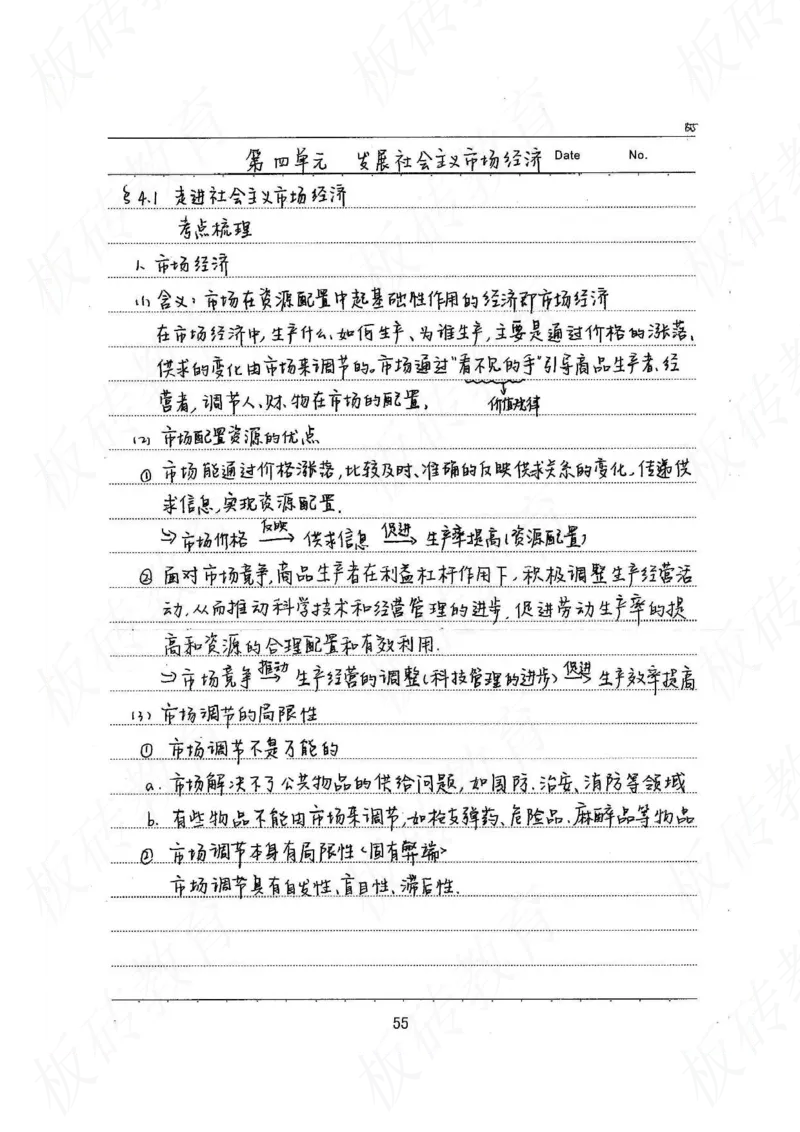 55
第四单元 发展社会主义市场经济 Date No.
§4.1 走进社会主义市场经济
考点梳理
1、市场经济
(1) 含义:市场在资源配置中起基础性作用的经济即市场经济
在市场经济中,生产什么、如何生产、为谁生产,主要是通过价格的涨落、
供求的变化由市场来调节的。市场通过"看不见的手"引导商品生产者、经
营者,调节人、财、物在市场的配置。
价值规律
(2) 市场配置资源的优点
① 市场能通过价格涨落,比较及时、准确的反映供求关系的变化,传递供
求信息,实现资源配置.
⇒市场价格 反映→ 供求信息 促进→ 生产率提高(资源配置)
② 面对市场竞争,商品生产者在利益杠杆作用下,积极调整生产经营活
动,从而推动科学技术和经营管理的进步,促进劳动生产率的提
高和资源的合理配置和有效利用.
⇒市场竞争 推动→ 生产经营的调整(科技管理的进步) 促进→ 生产效率提高
(3) 市场调节的局限性
① 市场调节不是万能的
a. 市场解决不了公共物品的供给问题,如国防、治安、消防等领域
b. 有些物品不能由市场来调节,如枪支弹药、危险品、麻醉品等物品
② 市场调节本身有局限性<固有弊端>
市场调节具有自发性、盲目性、滞后性.
55
板砖教育